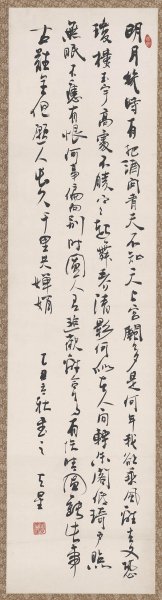 明月幾時有把酒問青天不知天上宮闕今夕是何年我欲乘風歸去又恐
瓊樓玉宇高處不勝寒起舞弄清影何似在人間轉朱閣低綺戶照
無眠不應有恨何事偏向別時圓人有悲歡離合月有陰晴圓缺此事
古難全但願人長久千里共嬋娟
乙丑